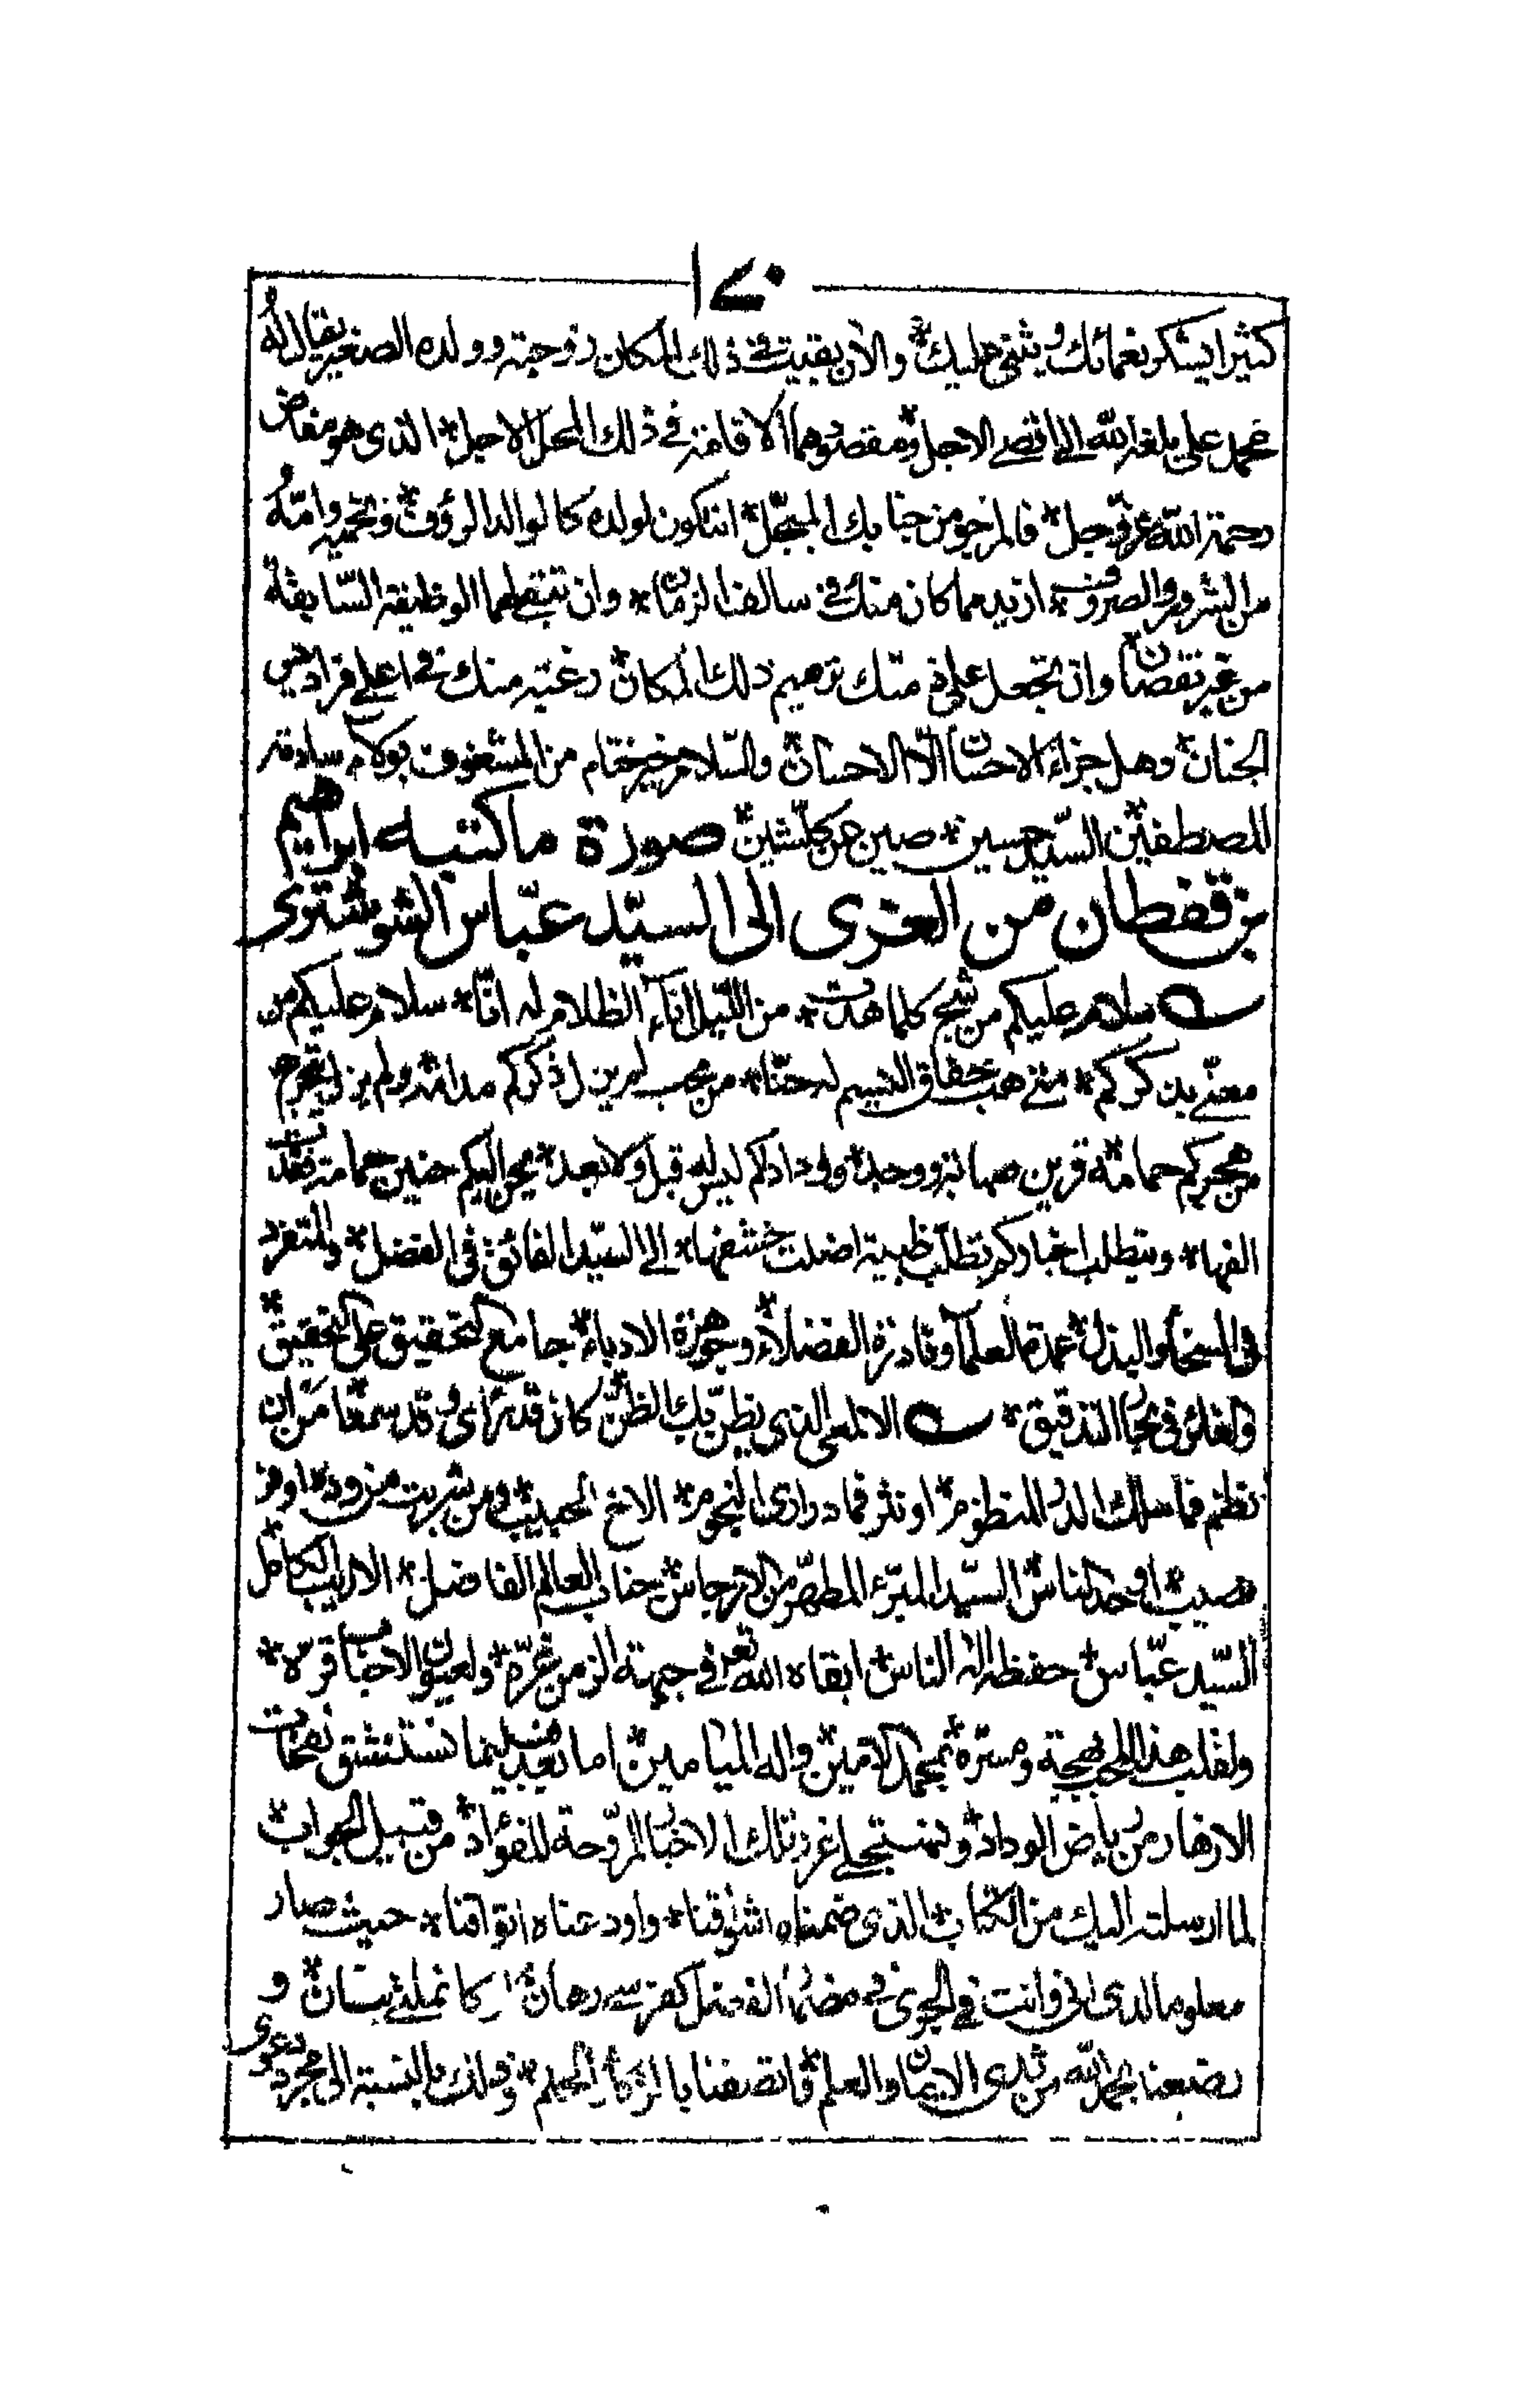 ١٧٠
كثيرا يشكر نعمائك ويثنى عليك * والآن بقيت فى ذلك المكان زوجته وولده الصغير يقال له
محمد على بلغه الله الى اقصى الاجل * ومقصودهما الاقامة فى ذلك المحل الاجل * الذى هو مفاض
رحمة الله عز وجل * فالمرجو من جنابك المبجل * ان تكون لولده كالوالد الرؤف * وتحميه وامه
من الشرور والصروف * ازيد مما كان منك فى سالف الزمان * وان تبقى لهما الوظيفة السابقة
من غير نقصان * وان تجعل على ذمتك ترميم ذلك المكان * رغبة منك فى اعلى فراديس
الجنان * وهل جزاء الاحسان الا الاحسان * والسلام خير ختام من المشغوف بولاء سادته
المصطفين * السيد حسين * صين عن كل شين * صورة ما كتبه ابراهيم
بن قفطان من الغرى الى السيد عباس الشوشترى
سلام عليكم من شج كلما هدت * من الليل آناء الظلام له انّا * سلام عليكم من
معنّى بذكركم * متى هب خفاق النسيم له حنّا * من محب لم يزل ذكركم مدامه * ولم يزل يتجرع
من هجركم حمامه * قرين صبابة ووجد * وودادكم ليس له قبل ولا بعد * يحن اليكم حنين حمامة فقدت
الفها * ويتطلب اخباركم تطلب ظبية اضلت خشفها * الى السيد الفائق فى الفضل * والمتفرد
فى السخاء والبذل * عمدة العلماء ونادرة الفضلاء * وجوهرة الادباء * جامع التحقيق على التحقيق *
والفلك فى بحار التدقيق * الالمعى الذى يظن بك الظن كان قد رأى وقد سمعا * من ان
نظم فما سلك الدر المنظوم * او نثر فما درارى النجوم * الاخ الحبيب * ومن شربت من وده اوفر
نصيب * اوحد الناس السيد المبرء المطهر من الارجاس * جناب العالم الفاضل * الاريب الكامل
السيد عباس * حفظه اله الناس * ابقاه الله تعالى فى جبهة الزمن غرة * ولعيون الاحباب قرة *
ولقلب هذا المحب بهجة ومسرة * بمحمد الامين * واله الميامين * اما بعد فبينما نستنشق نفحات
الازهار من رياض الوداد * ونستجلى غرر تلك الاخبار المروحة للفؤاد * من قبيل الجواب *
لما ارسلته اليك من الكتاب * الذى ضمناه اشواقنا * واودعناه اتواقنا * حيث صار
معلوما لدى انى وانت فى الجرى فى مضمار الفضل كفرسى رهان * كانملتى بنان * و
رضعنا بحمد الله من ثدى الايمان والعلم * فاتصفنا بالذكاء والحلم * وذلك بالنسبة الى مجرد دعوى